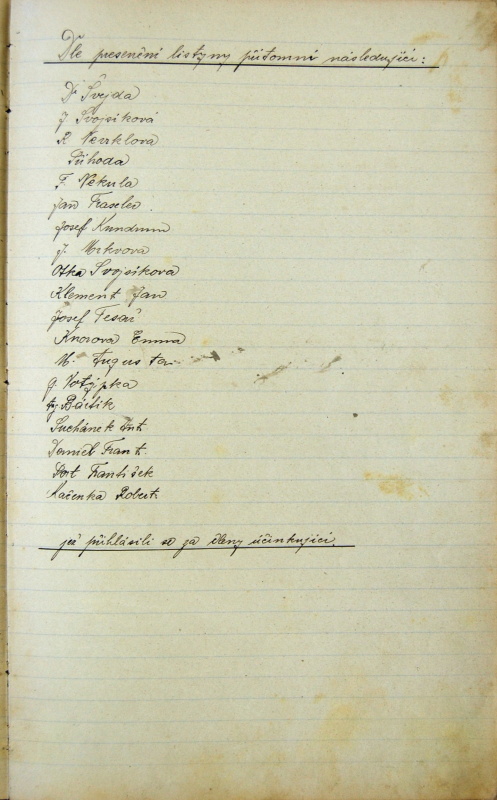 Dle presenční listyny přítomni následující:
Dr Švejda
J Svojsíková
R Nevrklova
Příhoda
F. Nekula
Jan
Josef Kundrum
J. Mrkvova
Otka Svojsíkova
Klement Jan
Josef Tesař
Knorova Emma
M. Augusta
J. Votýpka
Bártík
Suchánek Ant
Daniel Frant.
František
Mačenka Robert
jež přihlásili se za členy účinkující.